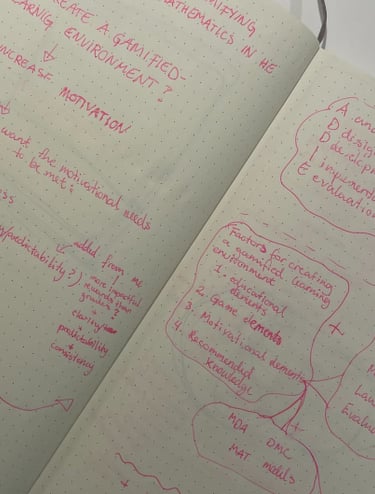 CREATE A GAMIFIED-
ENVIRONMENT?
INCREASE MOTIVATION
want the motivational needs
to be met?
predictability?)
added from me
more impactful
rewards than
grades?
+
predictability
+
consistency
GAMIFYING
MATHEMATICS IN HE
A
D desig
D develop
I implement
E evaluation
Factors for creating
a gamified learning
environment
1. educational
elements
2. Game elements
3. Motivational elements
4. Recommended
knowledge
+
+
MDA DMC
MAT models
+
Evalu